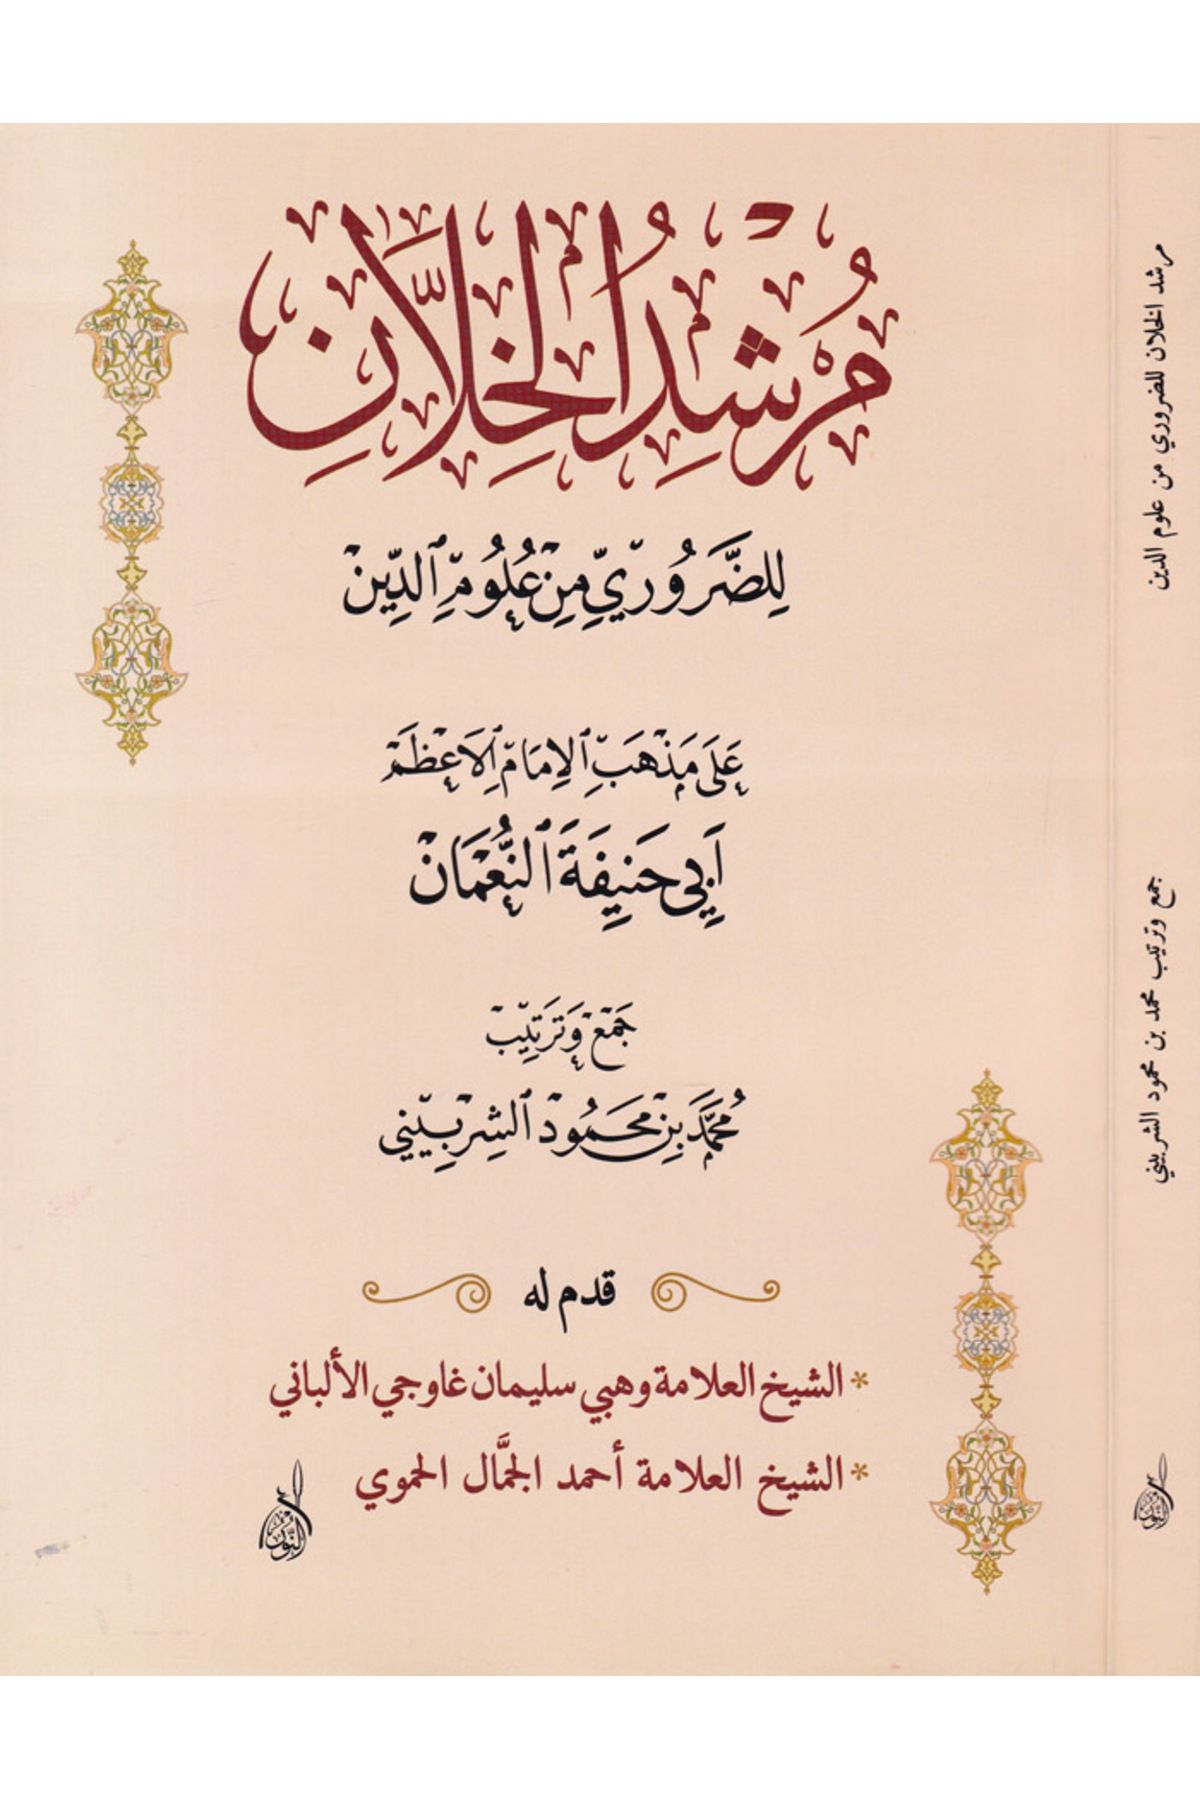 مُرْشِدُ الخِلَّانِ
لِلضَّرُورِيِّ مِنْ عُلُومِ ٱلدِّينْ
عَلَى مَذْهَبِ ٱلإِمَامِ ٱلأَعْظَمْ
أَبِي حَنِيفَةَ ٱلنُّعْمَانْ
جَمْعُ وَتَرْتِيْبْ
مُحَمَّدَ بِنْ مَحَمُودْ ٱلشِرْبِيْنِي
قدم له
* الشيخ العلامة وهبي سليمان غاوجي الألباني
* الشيخ العلامة أحمد الجمَّال الحموي
النور
مرشد الخلان للضروري من علوم الدين
جمع وترتيب محمد بن محمود الشربيني
النور